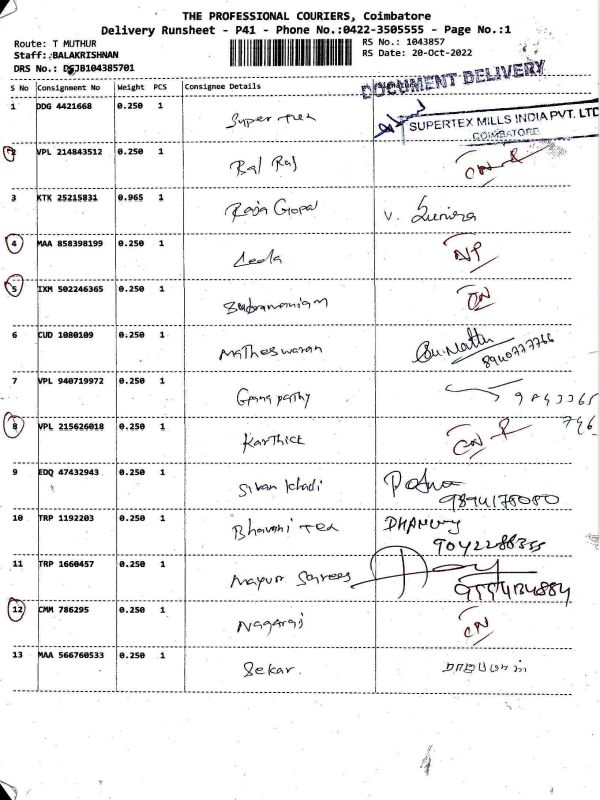 THE PROFESSIONAL COURIERS, Coimbatore
Delivery Runsheet - P41 - Phone No.:0422-3505555 - Page No.:1
Route: T MUTHUR
RS No.: 1043857
Staff: BALAKRISHNAN
RS Date: 20-Oct-2022
DRS No.:
DOCUMENT DELIVERY
S No Consignment No Weight PCS Consignee Details
1 DDG 4421668 0.250 1 Super tex
SUPERTEX MILLS INDIA PVT. LTD
COIMBATORE
2 VPL 214843512 0.250 1 Bal Raj
3 KTK 25215831 0.965 1 Raja Gopal V.
4 MAA 858398199 0.250 1 Leela NP
5 IXM 502246365 0.250 1 Subramaniam
6 CUD 1080109 0.250 1 Matheswaran
8940777766
7 VPL 940719972 0.250 1 Ganapathy
8 VPL 215626018 0.250 1 Karthick CN
9 EDQ 47432943 0.250 1
10 TRP 1192203 0.250 1 Bhavani Tex
11 TRP 1660457 0.250 1 Mayur Sarees
12 CMM 786295 0.250 1 Nagaraj CN
13 MAA 566760533 0.250 1 Sekar.